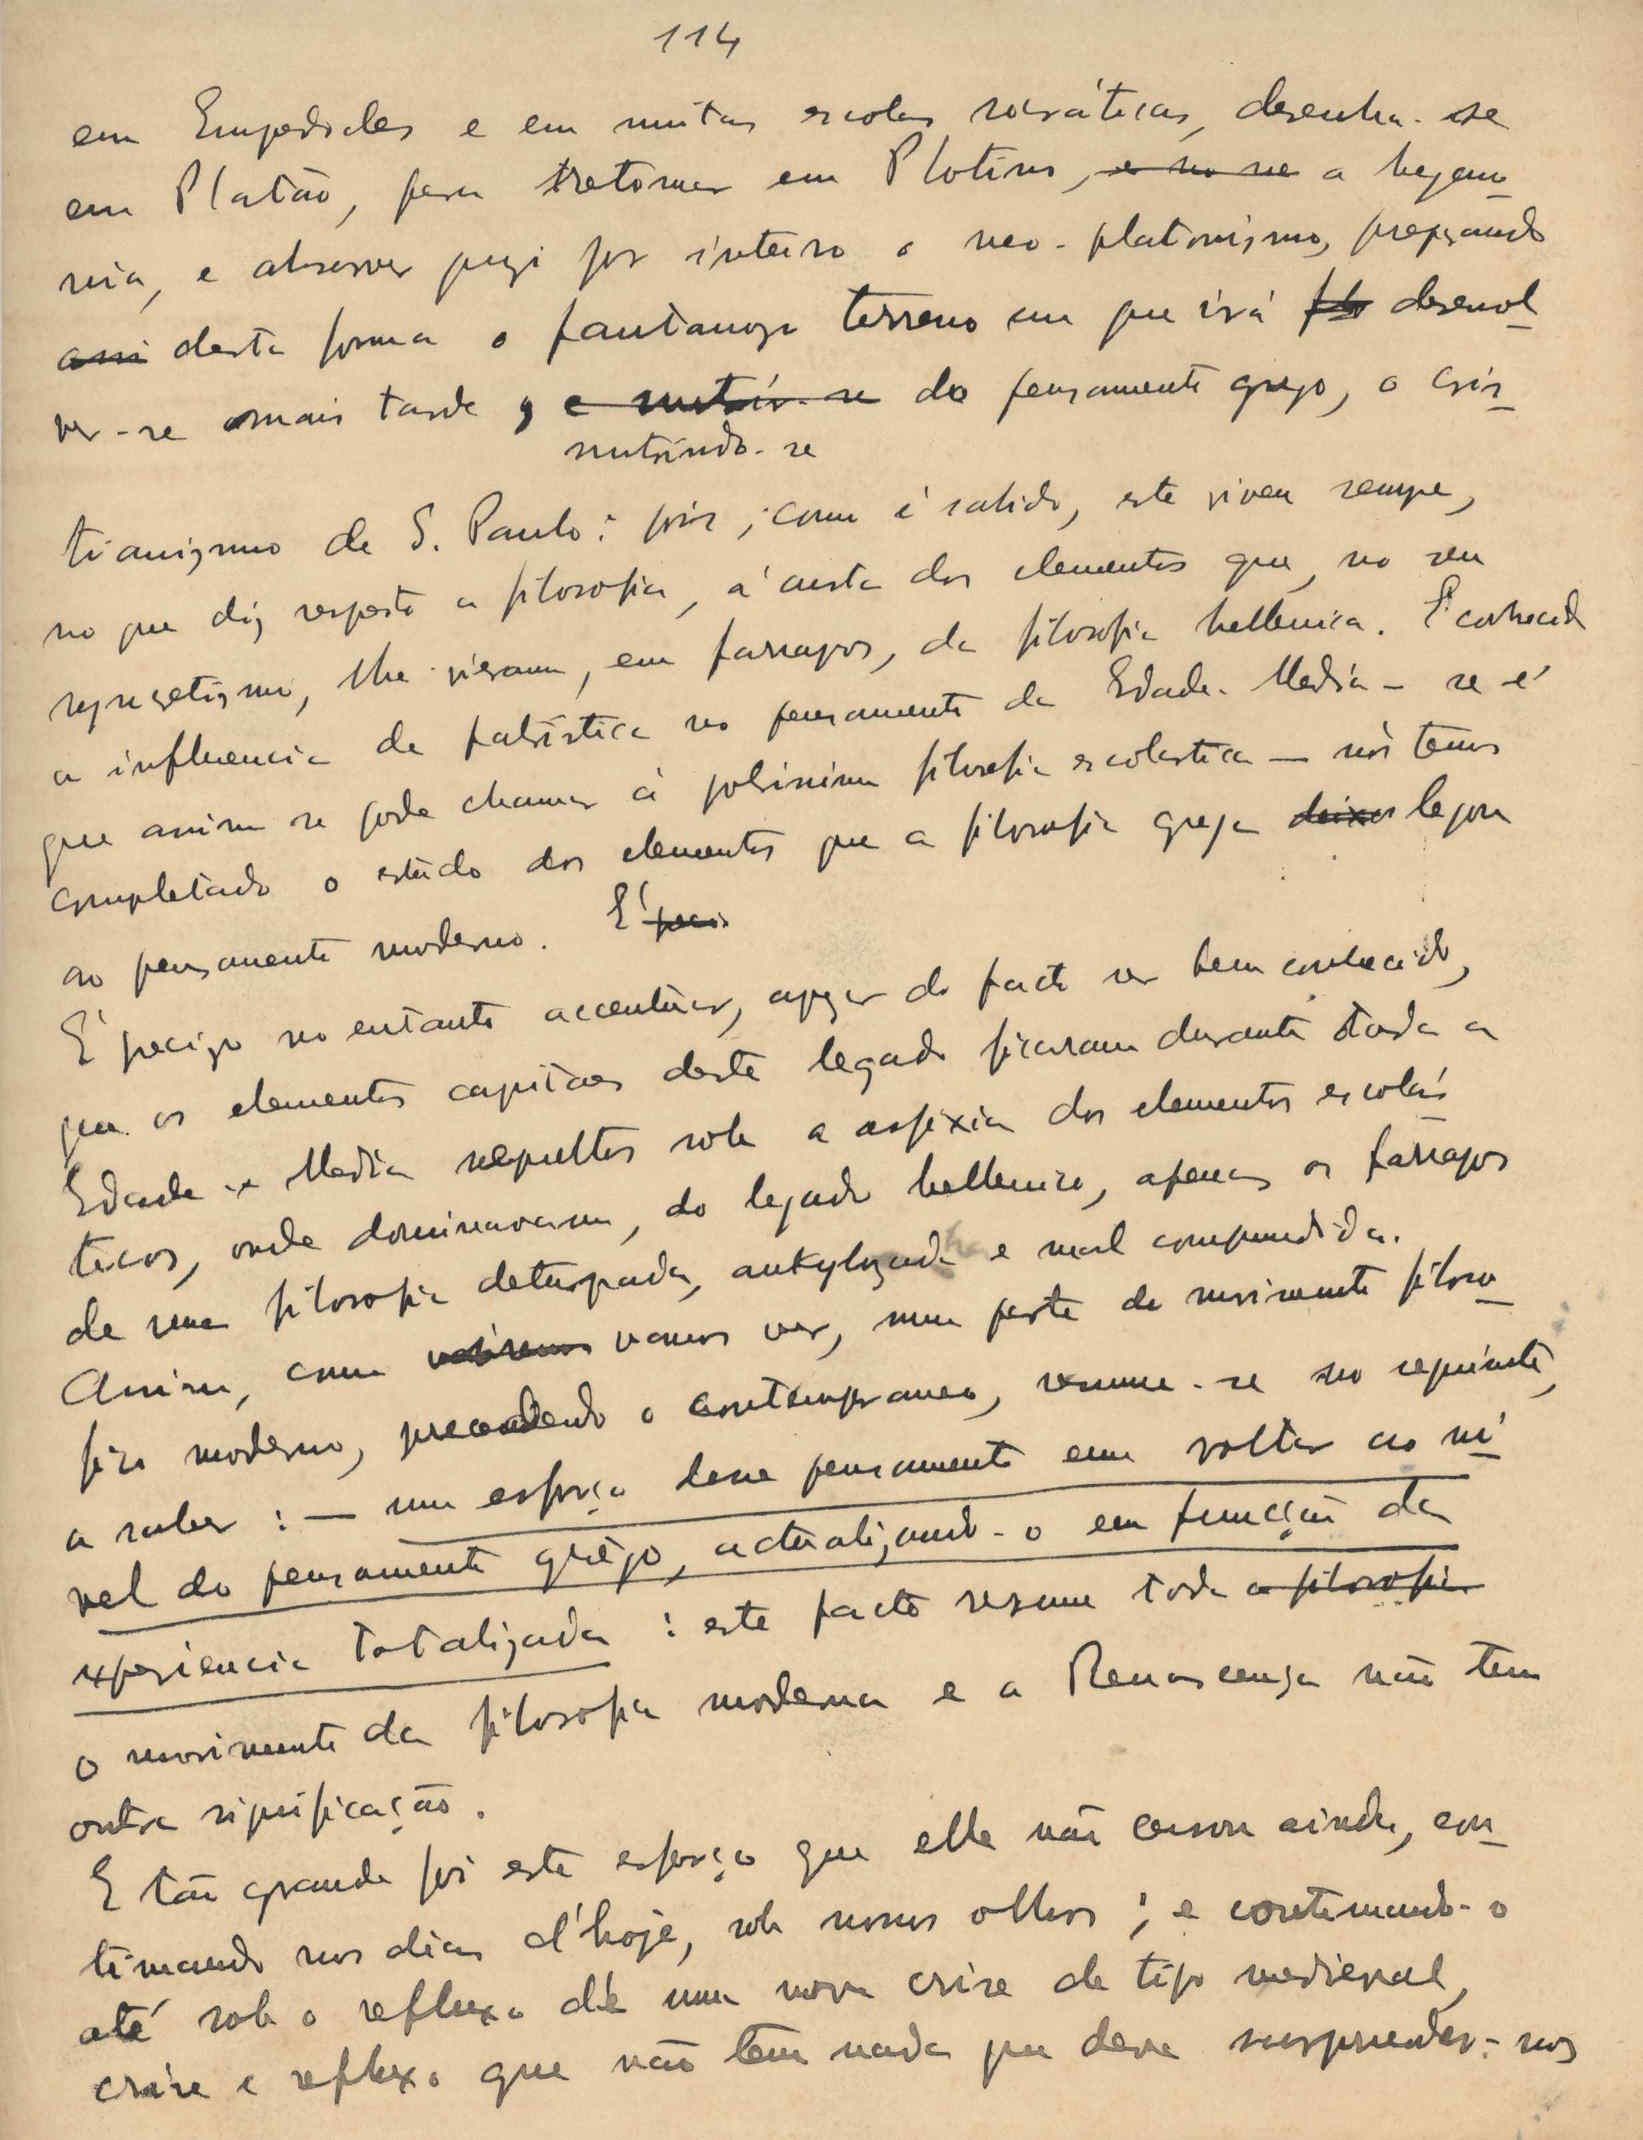 114
em Empedocles e em muitas escolas socráticas, desenha-se
em Platão, para retomar em Plotino, e no se a hegemo-
nia, e absorver quasi por inteiro o neo-platonismo, preparando
assi desta forma o pantanoso terreno em que irá desenvol-
ver-se mais tarde, e nutrir-se do pensamento grego, o cris-
nutrindo-se
tianismo de S. Paulo: pois, como é sabido, este viveu sempre,
no que diz respeito a filosofia, á custa dos elementos que, no seu
syncretismo, lhe vieram, em farrapos, da filosofia hellenica. É conhecida
a influencia da patristica no pensamento da Edade-Media - se é
que assim se pode chamar á filosofia escolastica - nós temos
completado o estudo dos elementos que a filosofia grega deixou legou
ao pensamento moderno. É preci
É preciso no entanto accentuar, apezar do facto ser bem conhecido,
que os elementos capitaes deste legado ficaram durante toda a
Edade-Media sepultos sob a asfixia dos elementos escolás-
ticos, onde dominavam, do legado hellenico, apenas os farrapos
de uma filosofia deturpada, ankylozada e mal compreendida.
Assim, como vamos ver, uma parte do movimento filoso-
fico moderno, precedendo o contemporaneo, resume-se no seguinte,
a saber: - um esforço desse pensamento em voltar ao ni-
vel do pensamento grego, actualizando-o em função da
experiencia totalizada: este facto resume toda a filosofia
o movimento da filosofia moderna e a Renascença não tem
outra significação.
E tão grande foi este esforço que elle não cessou ainda, con-
tinuando nos dias d'hoje, sob nossos olhos; e continuando-o
até sob o reflexo de uma nova crise de tipo medieval,
crise e reflexo que não tem nada que deva surpreender-nos